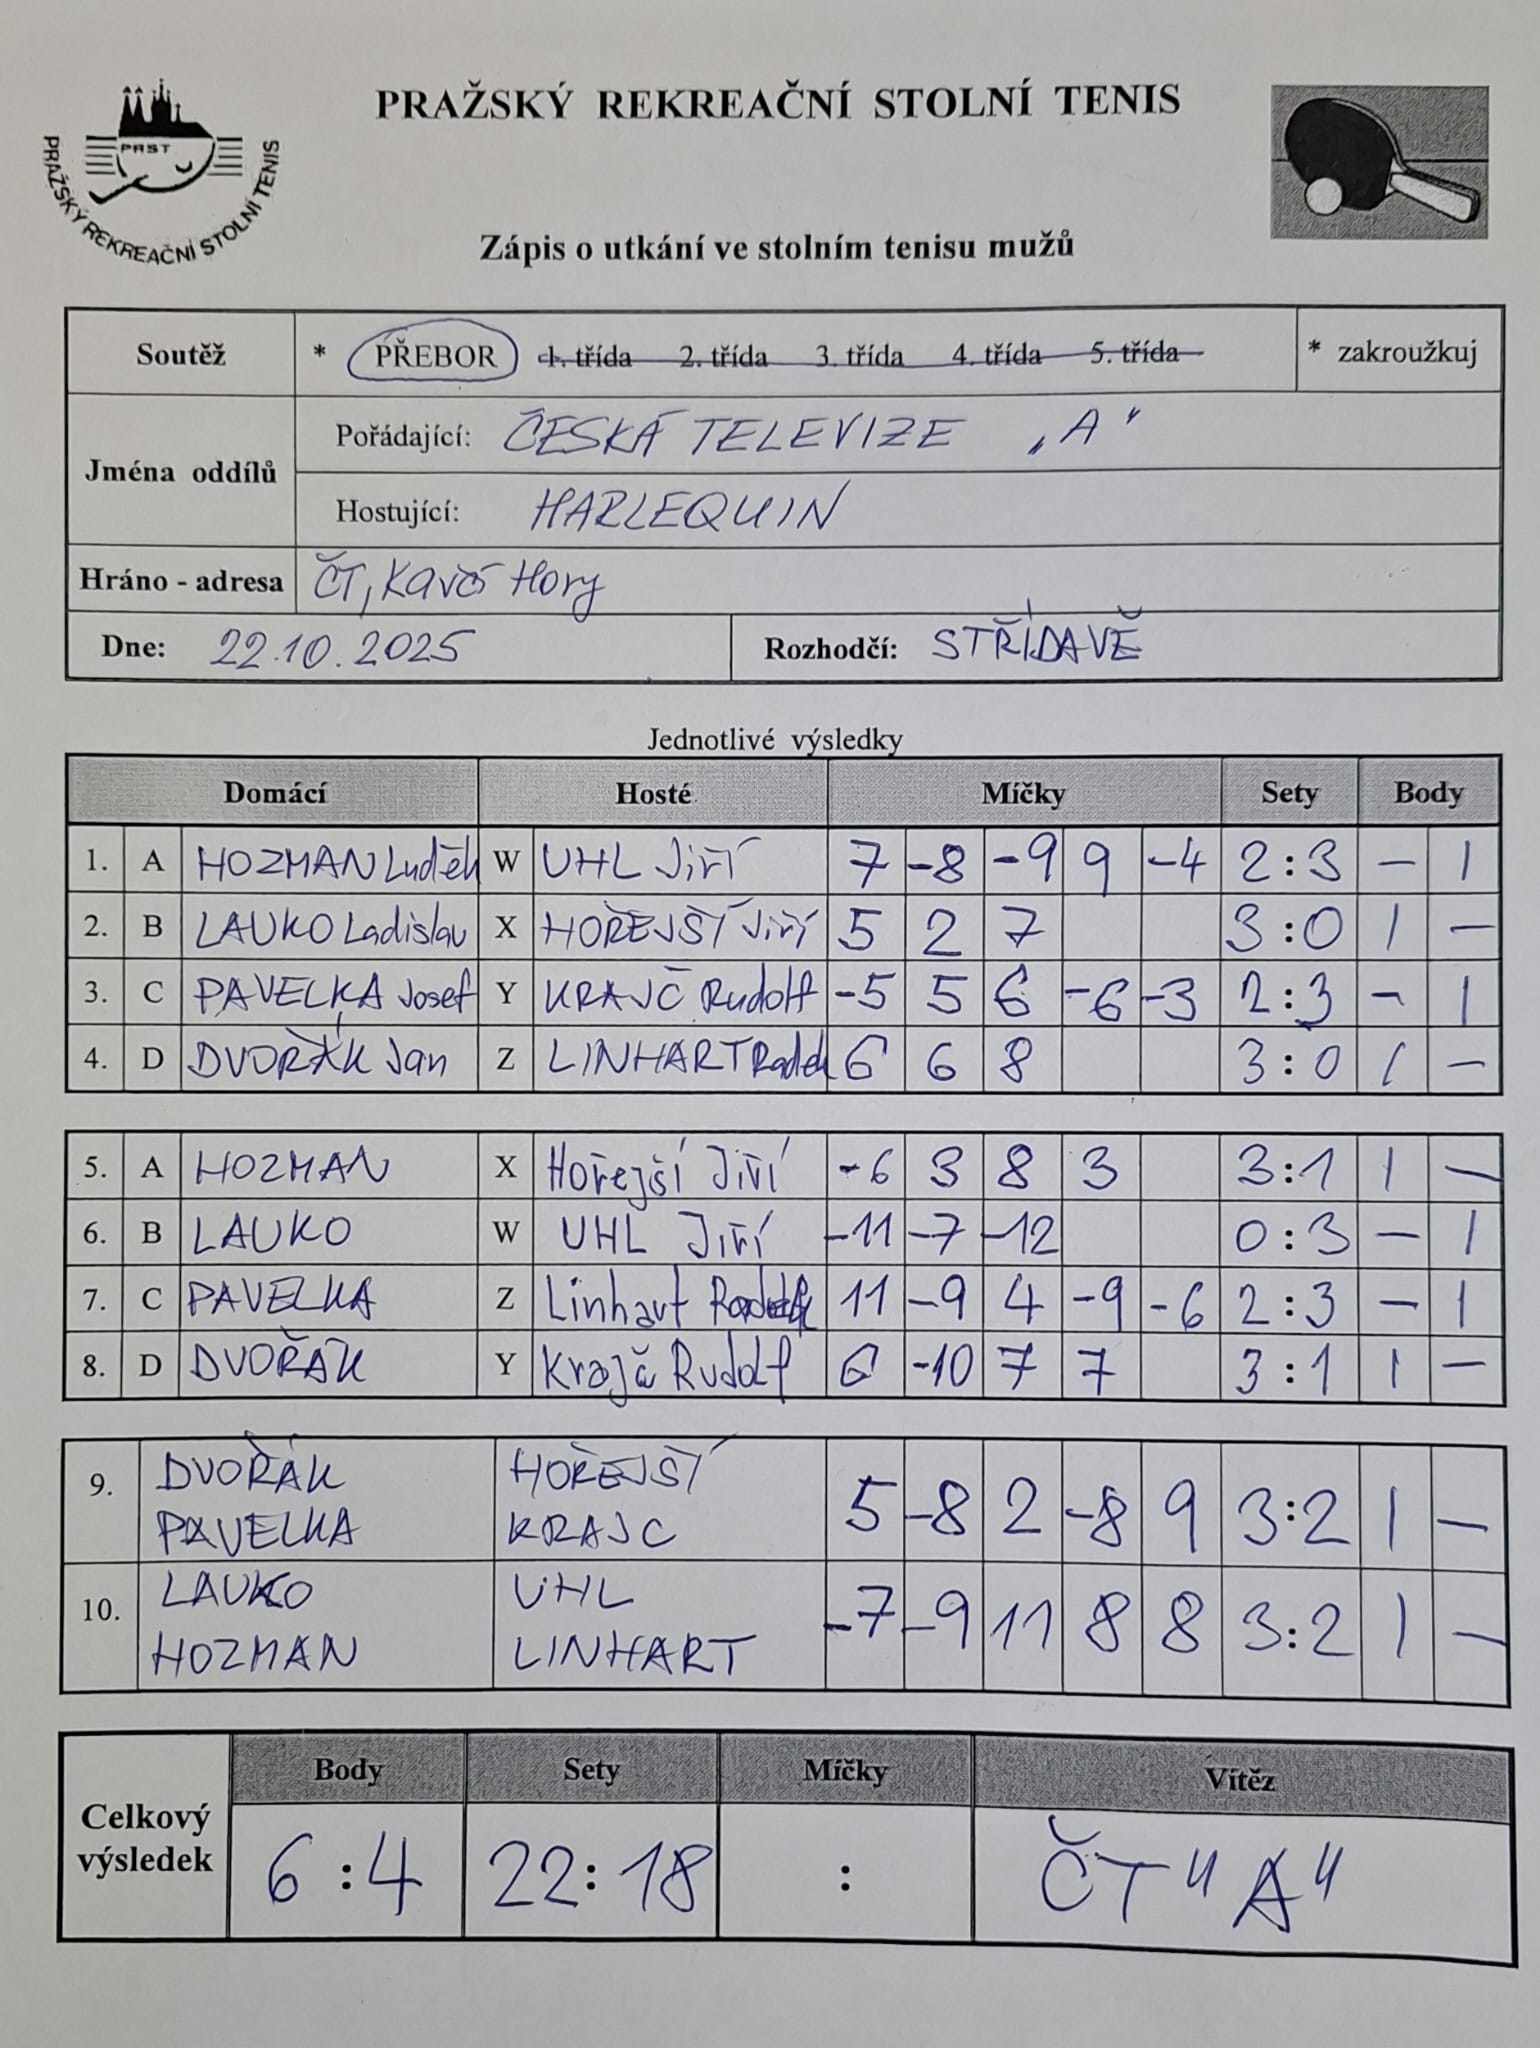 PRAŽSKÝ REKREAČNÍ STOLNÍ TENIS
PRST
PRAŽSKÝ REKREAČNÍ STOLNÍ TENIS
Zápis o utkání ve stolním tenisu mužů
Soutěž * PŘEBOR 1. třída 2. třída 3. třída 4. třída 5. třída * zakroužkuj
Jména oddílů
Pořádající: ČESKÁ TELEVIZE „A"
Hostující: HARLEQUIN
Hráno - adresa ČT, Kavčí Hory
Dne: 22.10.2025 Rozhodčí: STŘÍDAVĚ
Jednotlivé výsledky
Domácí Hosté Míčky Sety Body
1. A HOZMAN Luděk W UHL Jiří 7 -8 -9 9 -4 2:3 - 1
2. B LAUKO Ladislav X HOŘEJŠÍ Jiří 5 2 7 3:0 1 -
3. C PAVELKA Josef Y KRAJČ Rudolf -5 5 6 -6 -3 2:3 - 1
4. D DVOŘÁK Jan Z LINHART Radek 6 6 8 3:0 1 -
5. A HOZMAN X Hořejší Jiří -6 3 8 3 3:1 1 -
6. B LAUKO W UHL Jiří -11 -7 -12 0:3 - 1
7. C PAVELKA Z Linhart Radek 11 -9 4 -9 -6 2:3 - 1
8. D DVOŘÁK Y Krajč Rudolf 6 -10 7 7 3:1 1 -
9. DVOŘÁK HOŘEJŠÍ 5 -8 2 -8 9 3:2 1 -
PAVELKA KRAJC
10. LAUKO UHL -7 -9 11 8 8 3:2 1 -
HOZMAN LINHART
Body Sety Míčky Vítěz
Celkový výsledek 6:4 22:18 : ČT "A"